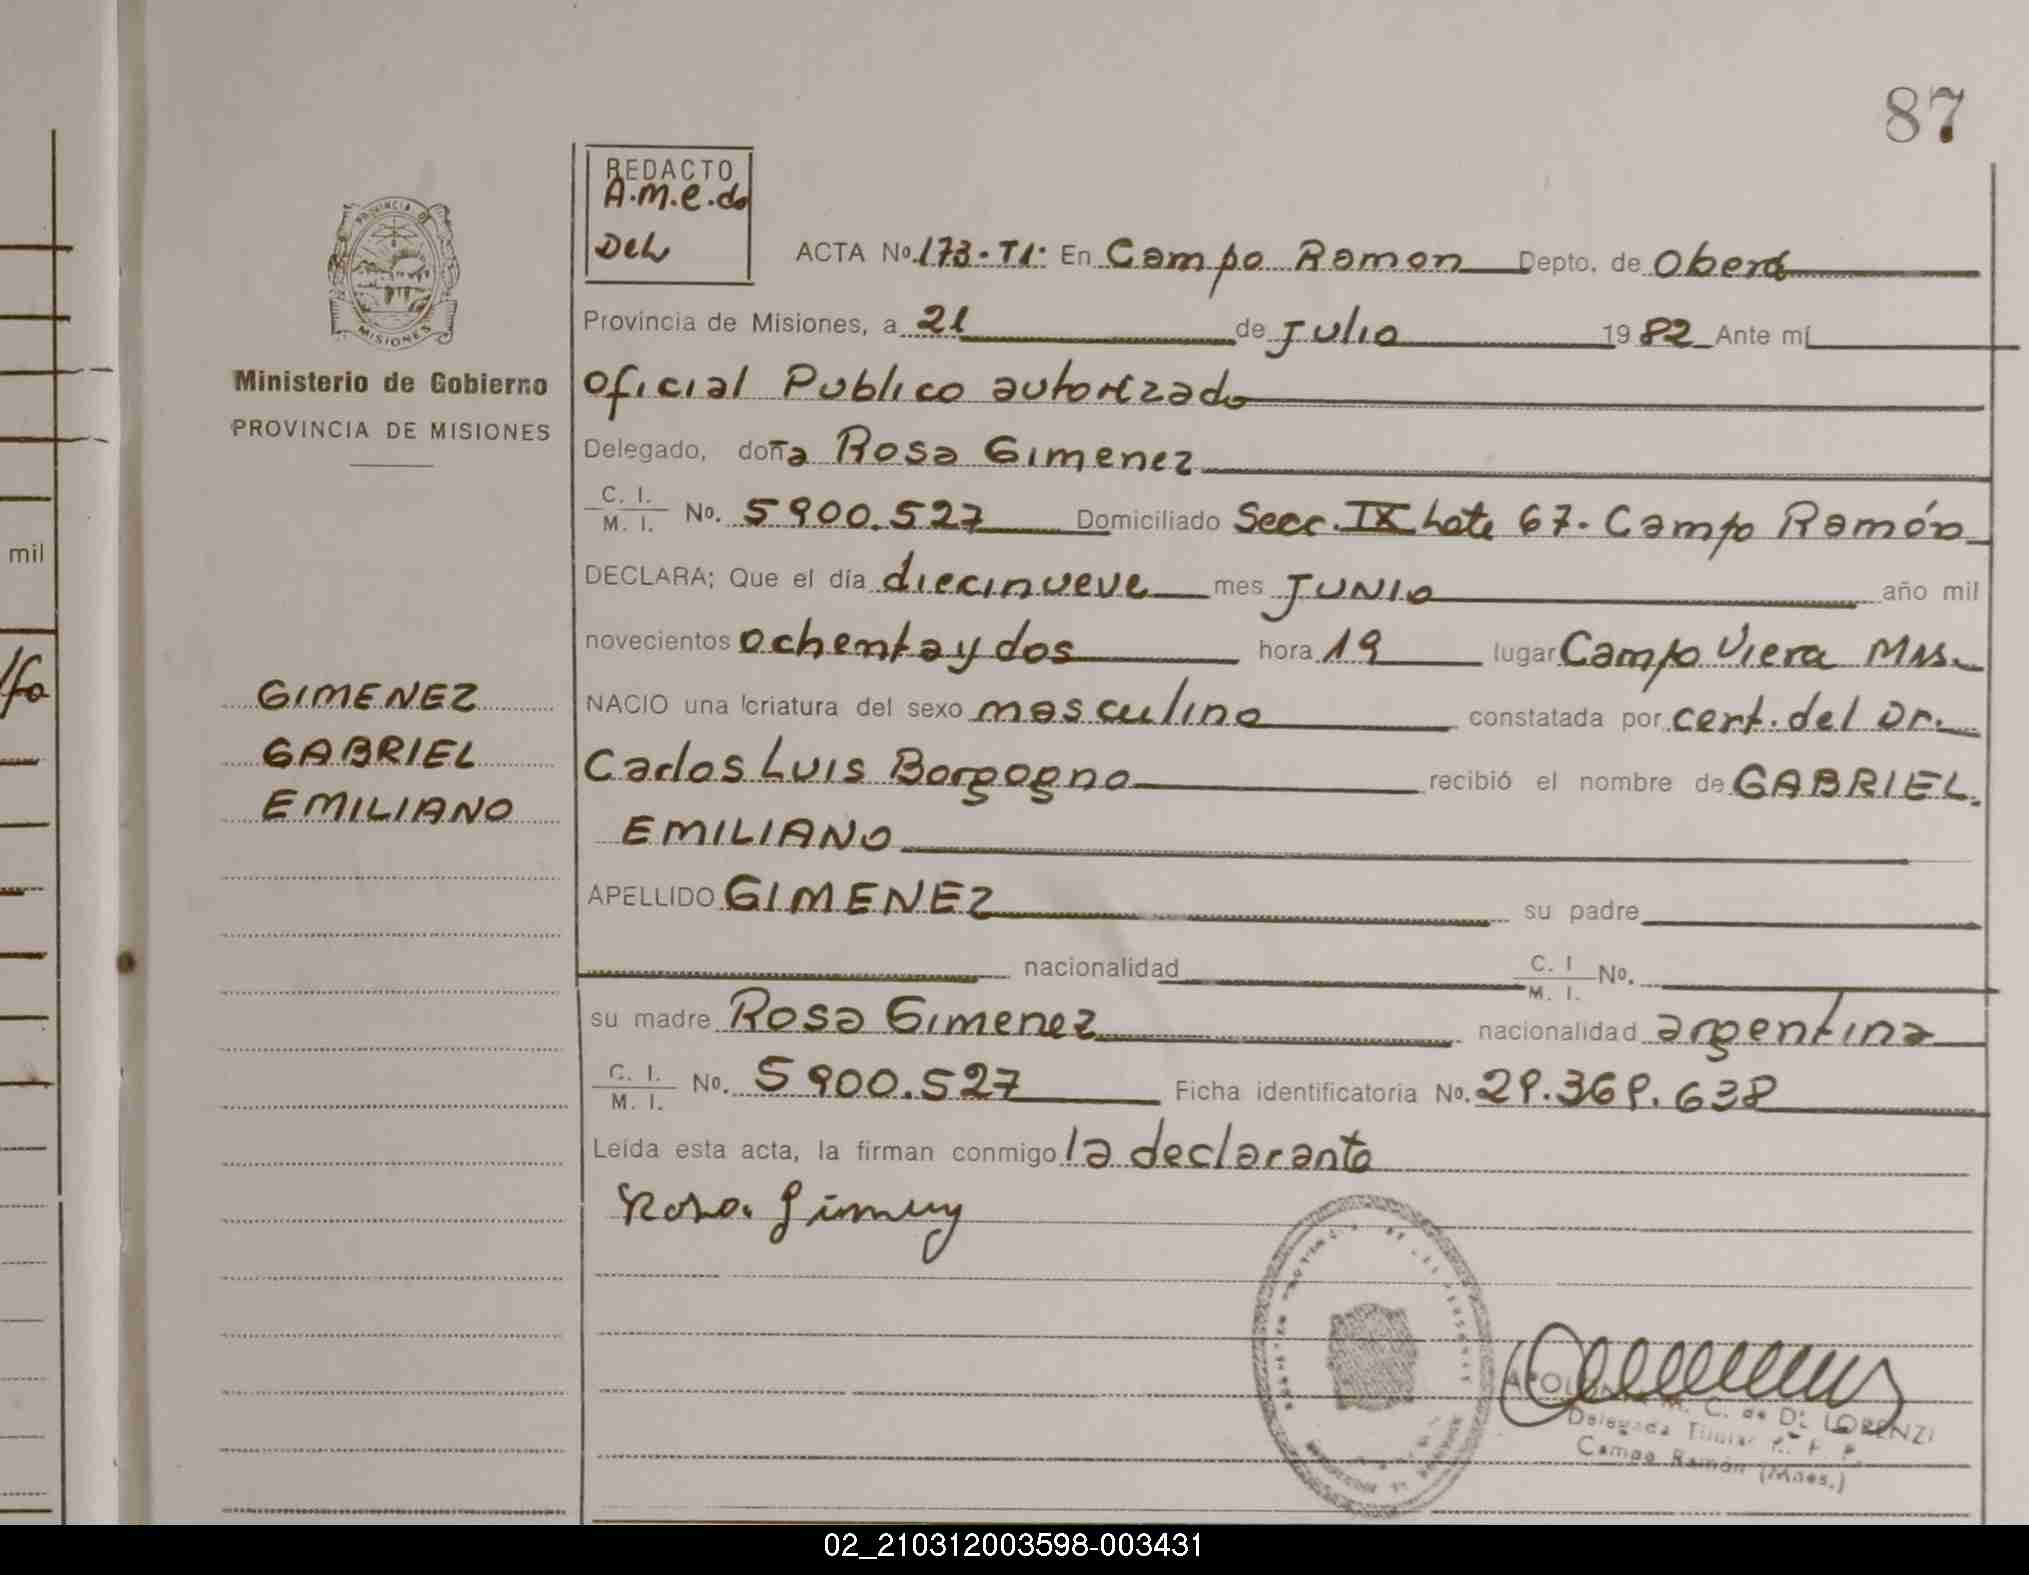 87
REDACTO
A.M.e.do
Del
ACTA Nº 173-T1· En Campo Ramon Depto. de Oberá
Provincia de Misiones, a 21 de Julio 1982 Ante mí
PROVINCIA DE
MISIONES
Ministerio de Gobierno
PROVINCIA DE MISIONES
oficial Publico autorizado
Delegado, doña Rosa Gimenez
C. I.
M. I. Nº. 5900.527 Domiciliado Secc. IX Lote 67. Campo Ramón
mil
DECLARA; Que el día diecinueve mes JUNIO año mil
novecientos ochenta y dos hora 19 lugar Campo Viera Mns.
GIMENEZ
GABRIEL
EMILIANO
NACIO una criatura del sexo masculino constatada por cert. del Dr.
Carlos Luis Borgogno recibió el nombre de GABRIEL.
EMILIANO
APELLIDO GIMENEZ su padre
nacionalidad C. I
M. I. Nº.
su madre Rosa Gimenez nacionalidad argentina
C. I.
M. I. Nº. 5900.527 Ficha identificatoria Nº. 29.369.638
Leída esta acta, la firman conmigo la declarante
Rosa. Gimenez
M. C. de Di LORENZI
Delegada Titular
Campo Ramón (Mnes.)
02_210312003598-003431